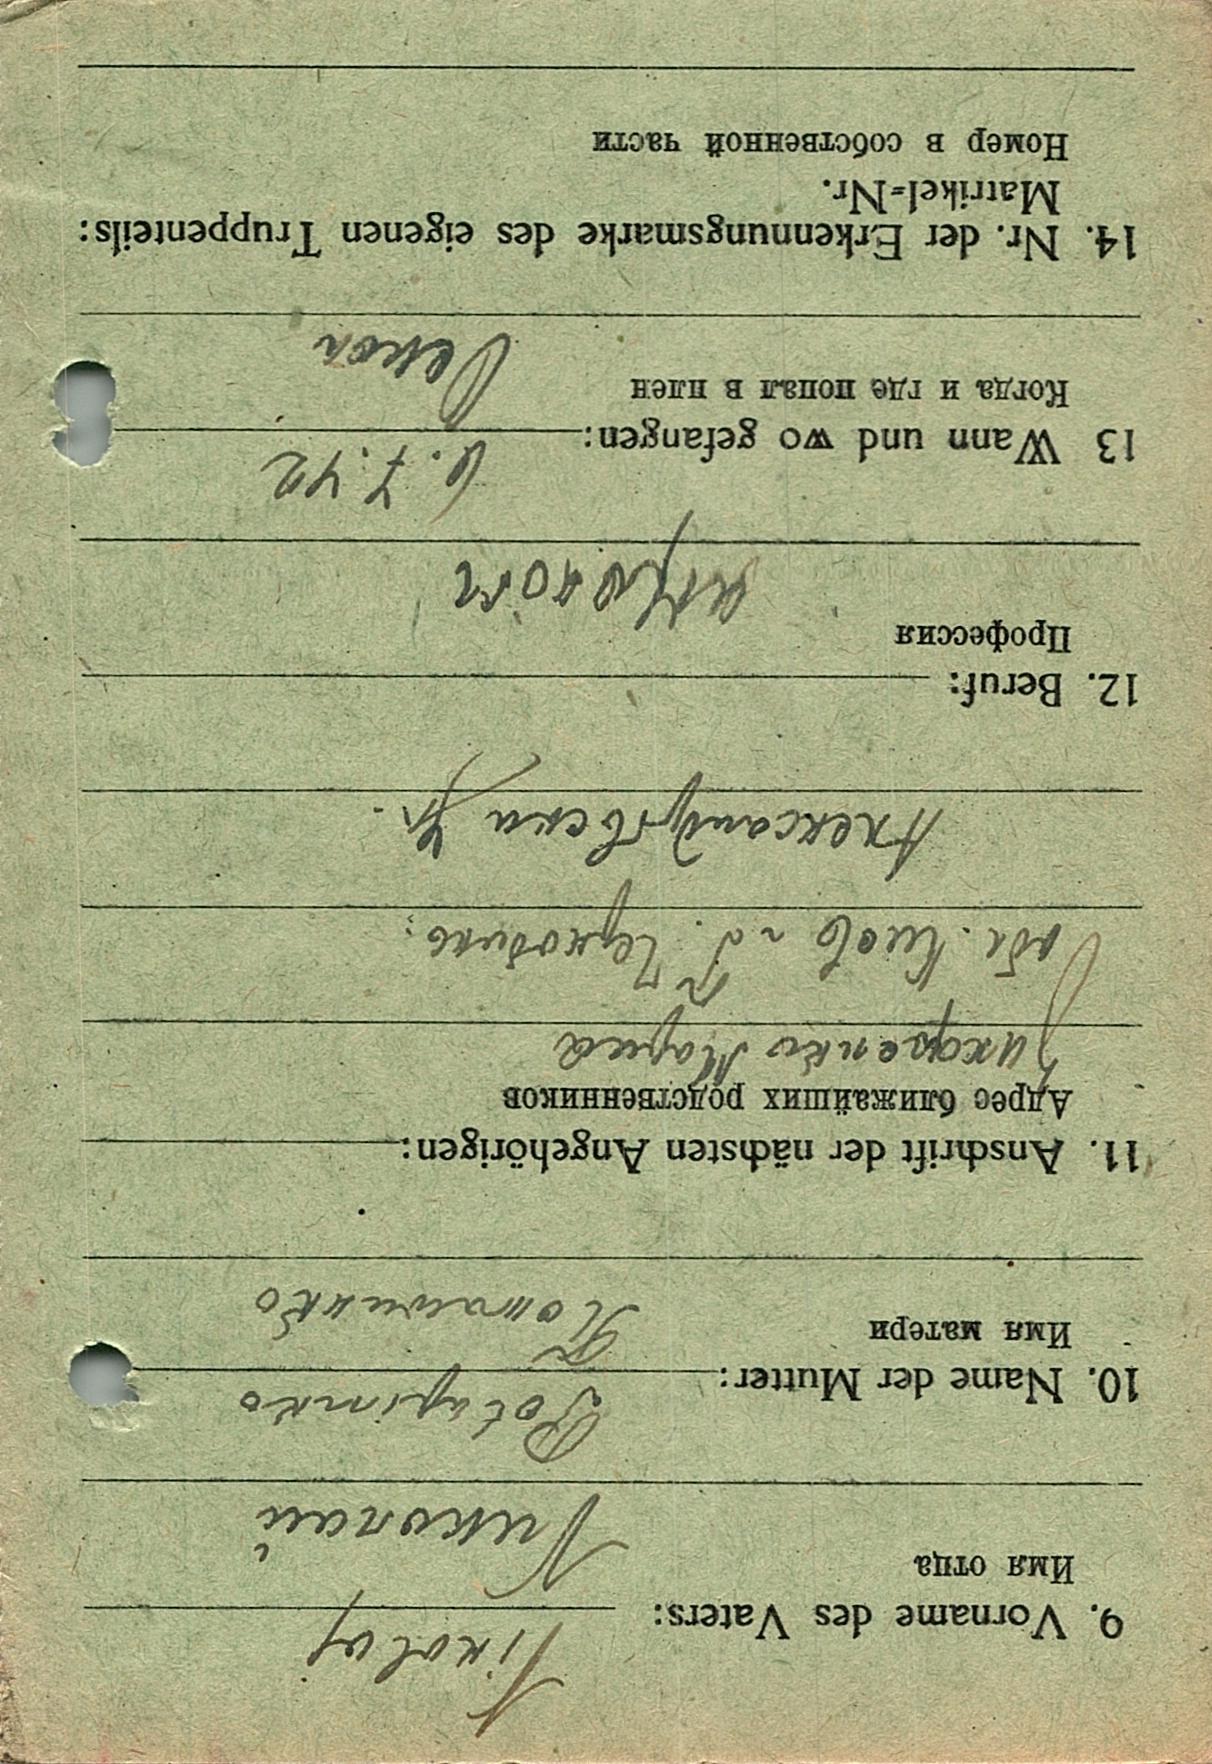 Nikolaj
9. Vorname des Vaters:
Имя отца
Николай
Potapinko
10. Name der Mutter:
Имя матери
11. Anschrift der nächsten Angehörigen:
Адрес ближайших родственников
Мария
Обл. Киев
12. Beruf:
Профессия
агроном
13 Wann und wo gefangen: 6.7.42
Когда и где попал в плен
Оскол
14. Nr. der Erkennungsmarke des eigenen Truppenteils:
Matrikel=Nr.
Номер в собственной части